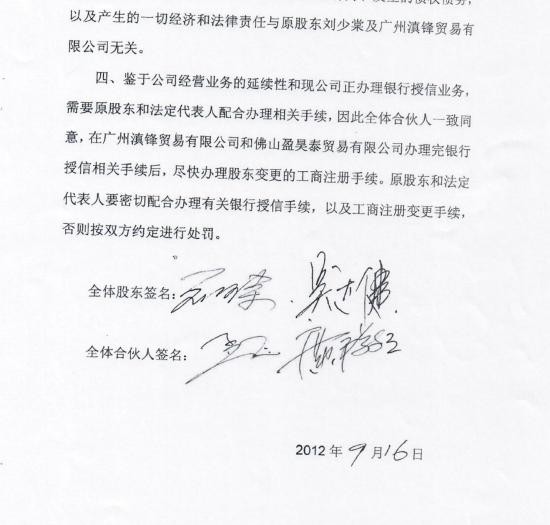 以及产生的一切经济和法律责任与原股东刘少棠及广州滇锋贸易有
限公司无关。
四、鉴于公司经营业务的延续性和现公司正办理银行授信业务,
需要原股东和法定代表人配合办理相关手续,因此全体合伙人一致同
意,在广州滇锋贸易有限公司和佛山盈昊泰贸易有限公司办理完银行
授信相关手续后,尽快办理股东变更的工商注册手续。原股东和法定
代表人要密切配合办理有关银行授信手续,以及工商注册变更手续,
否则按双方约定进行处罚。
全体股东签名:
全体合伙人签名:
2012 年 9 月 16 日